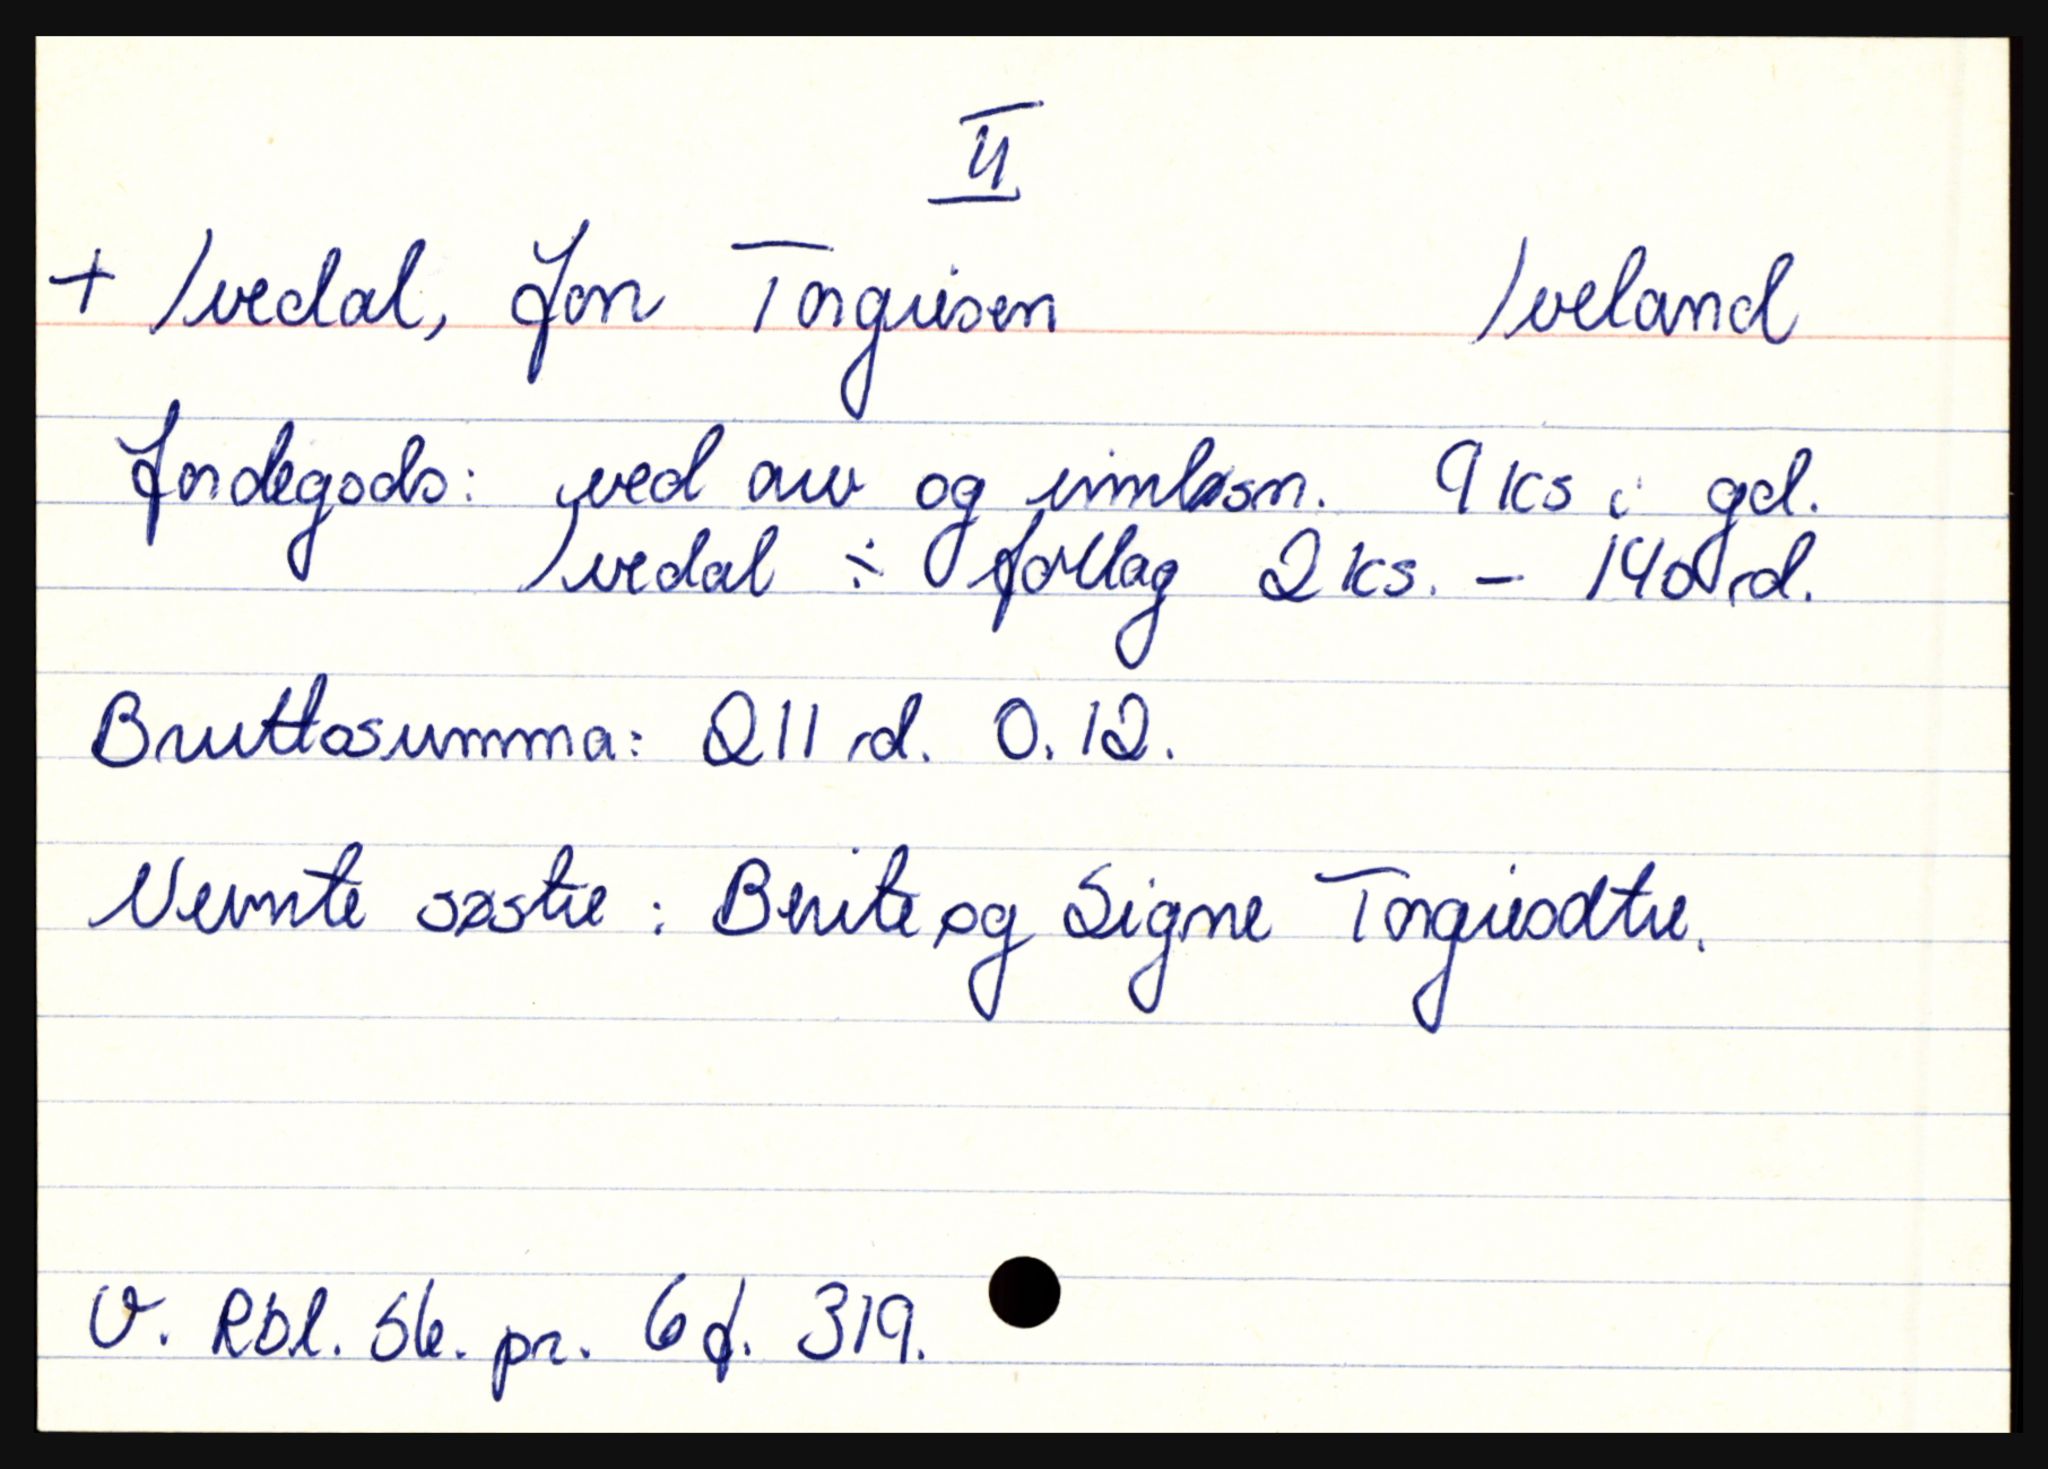 II
+ Ivedal, Jon Torgiesen Iveland
Jordegods: ved arv og innløsn. 9 ks i gd.
Ivedal ÷ forllag 2 ks. – 140 rd.
Bruttosumma: 211 rd. 0. 12.
Nevnte søstre: Berite og Signe Torgiesdtre.
V. Rbl. Sk. pr. 6 f. 319.